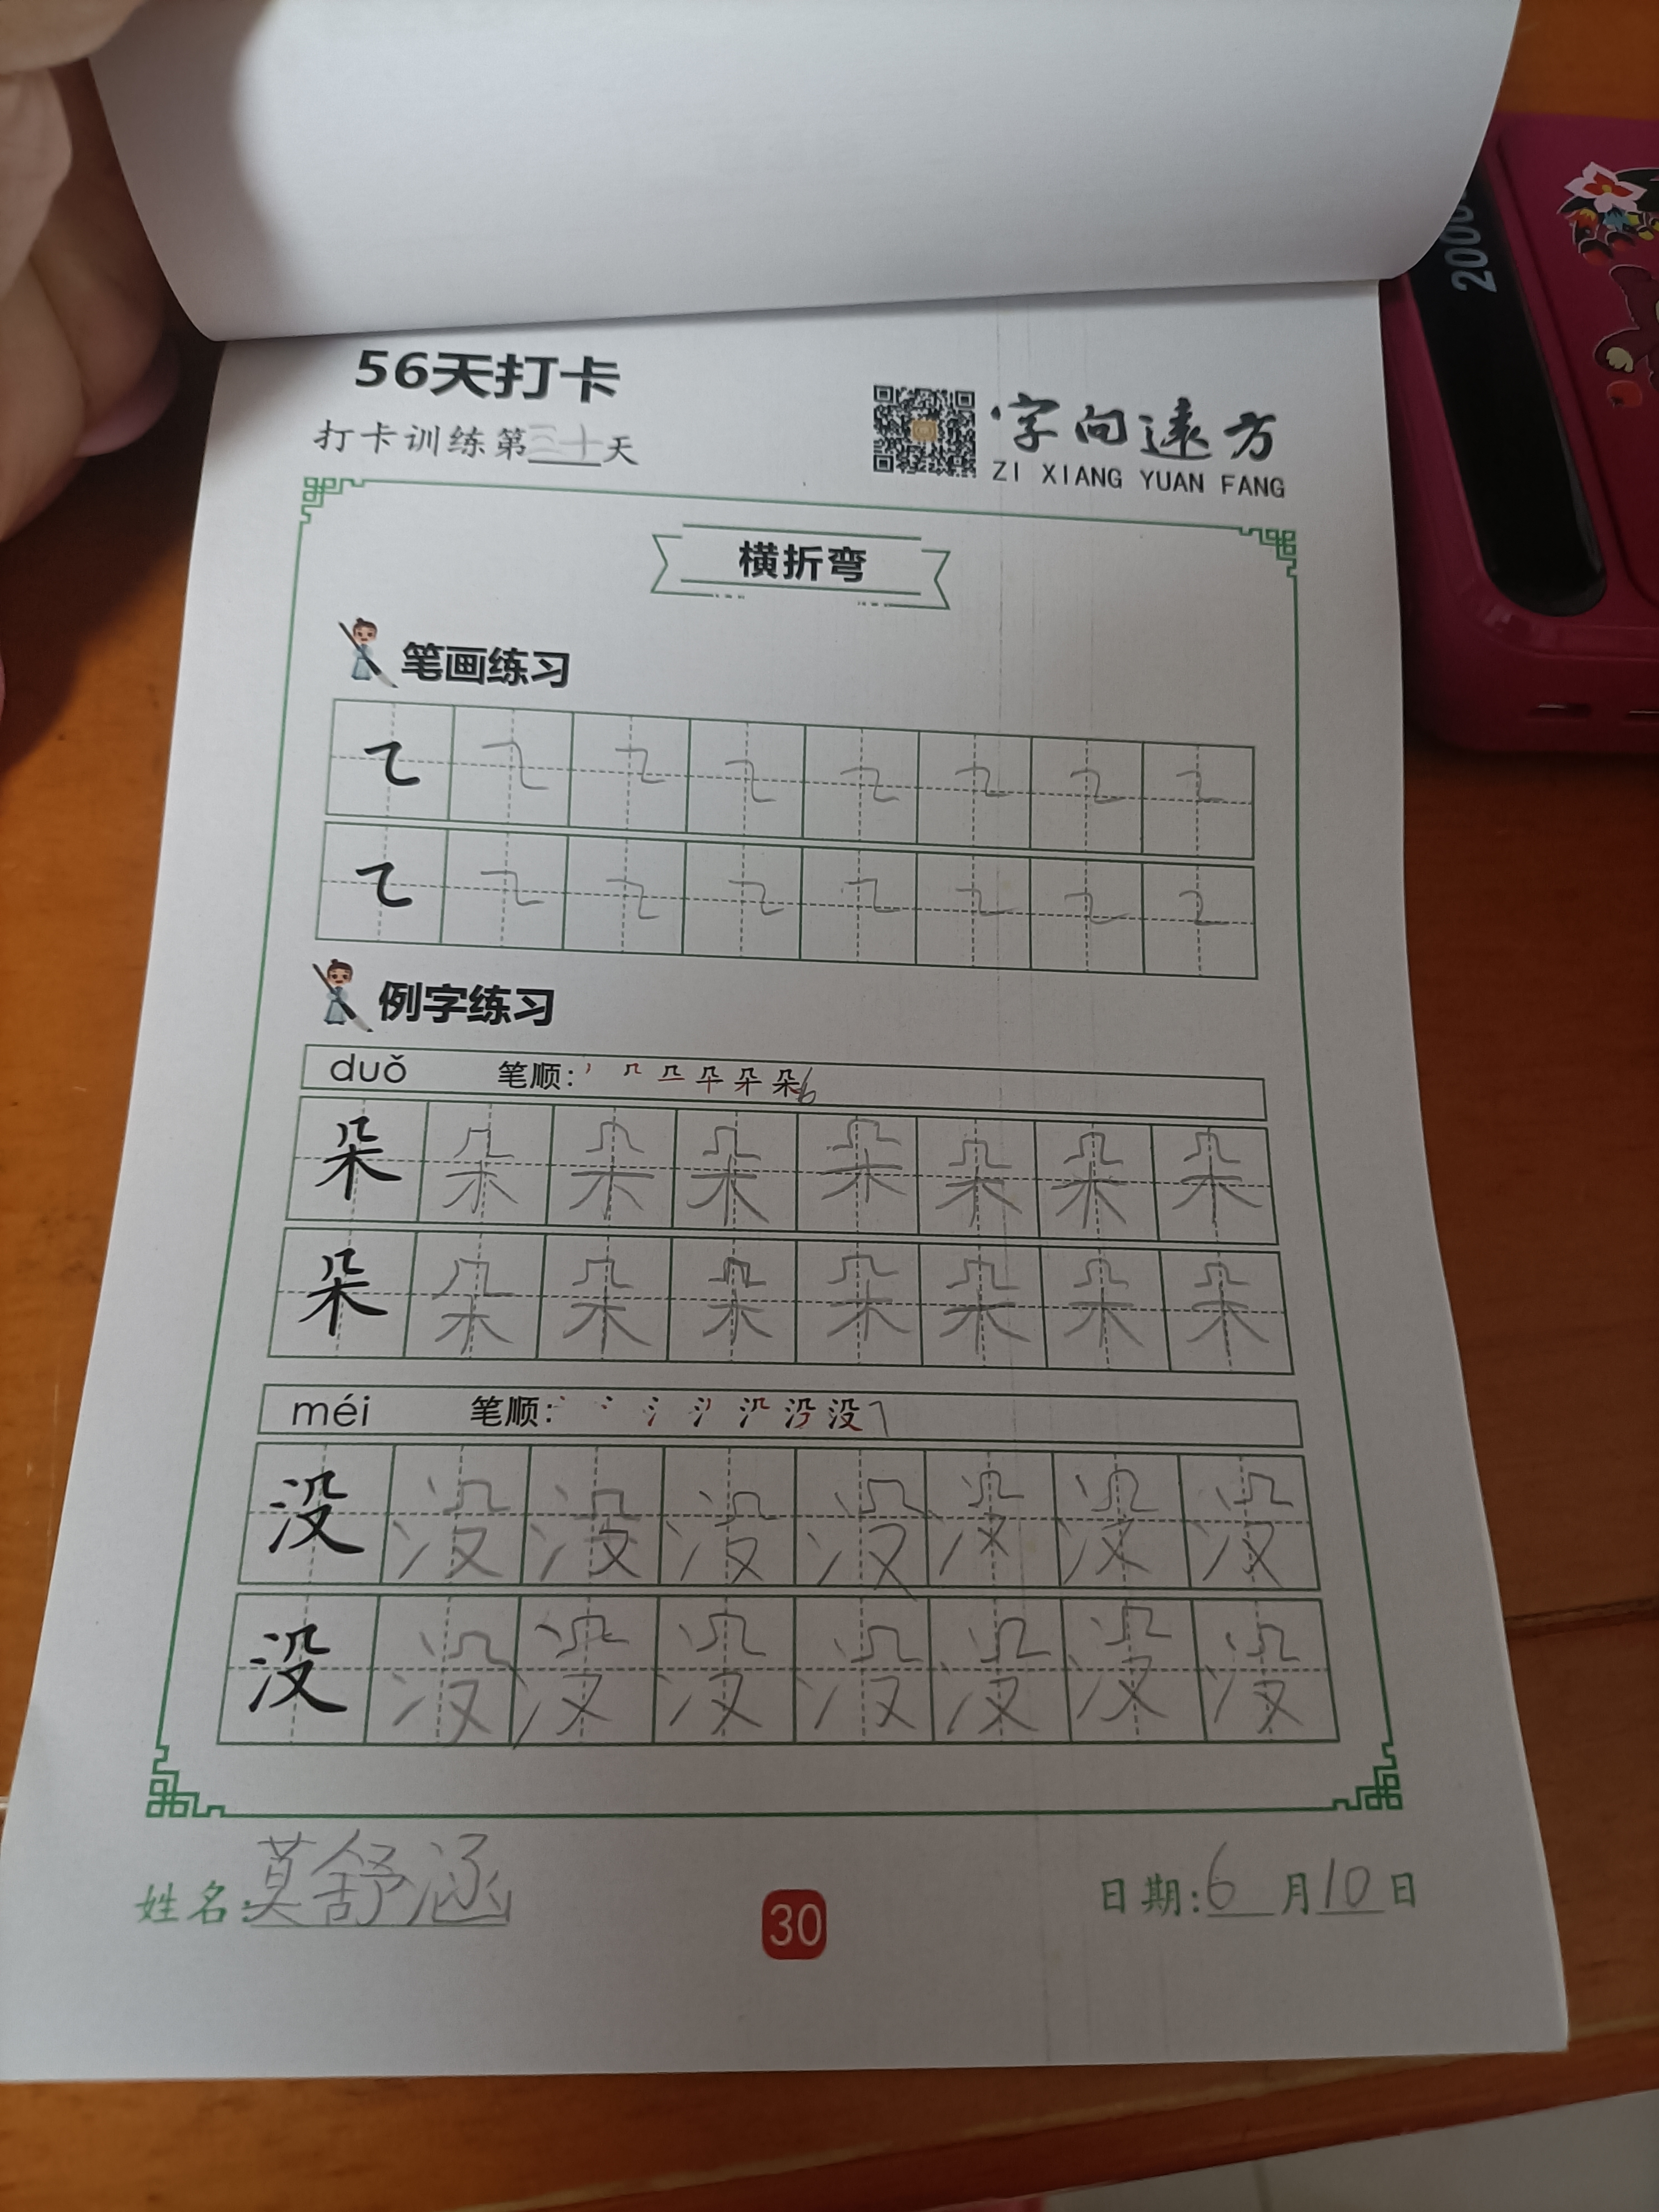 56天打卡
打卡训练第三十天
字向远方
ZI XIANG YUAN FANG
2000
横折弯
笔画练习
例字练习
duǒ 笔顺: 朵6
朵 朵 朵 朵 朵 朵 朵 朵
朵 朵 朵 朵 朵 朵 朵 朵
méi 笔顺: 没7
没 没 没 没 没 没 没 没
没 没 没 没 没 没 没 没
姓名:莫舒涵
30
日期:6月10日